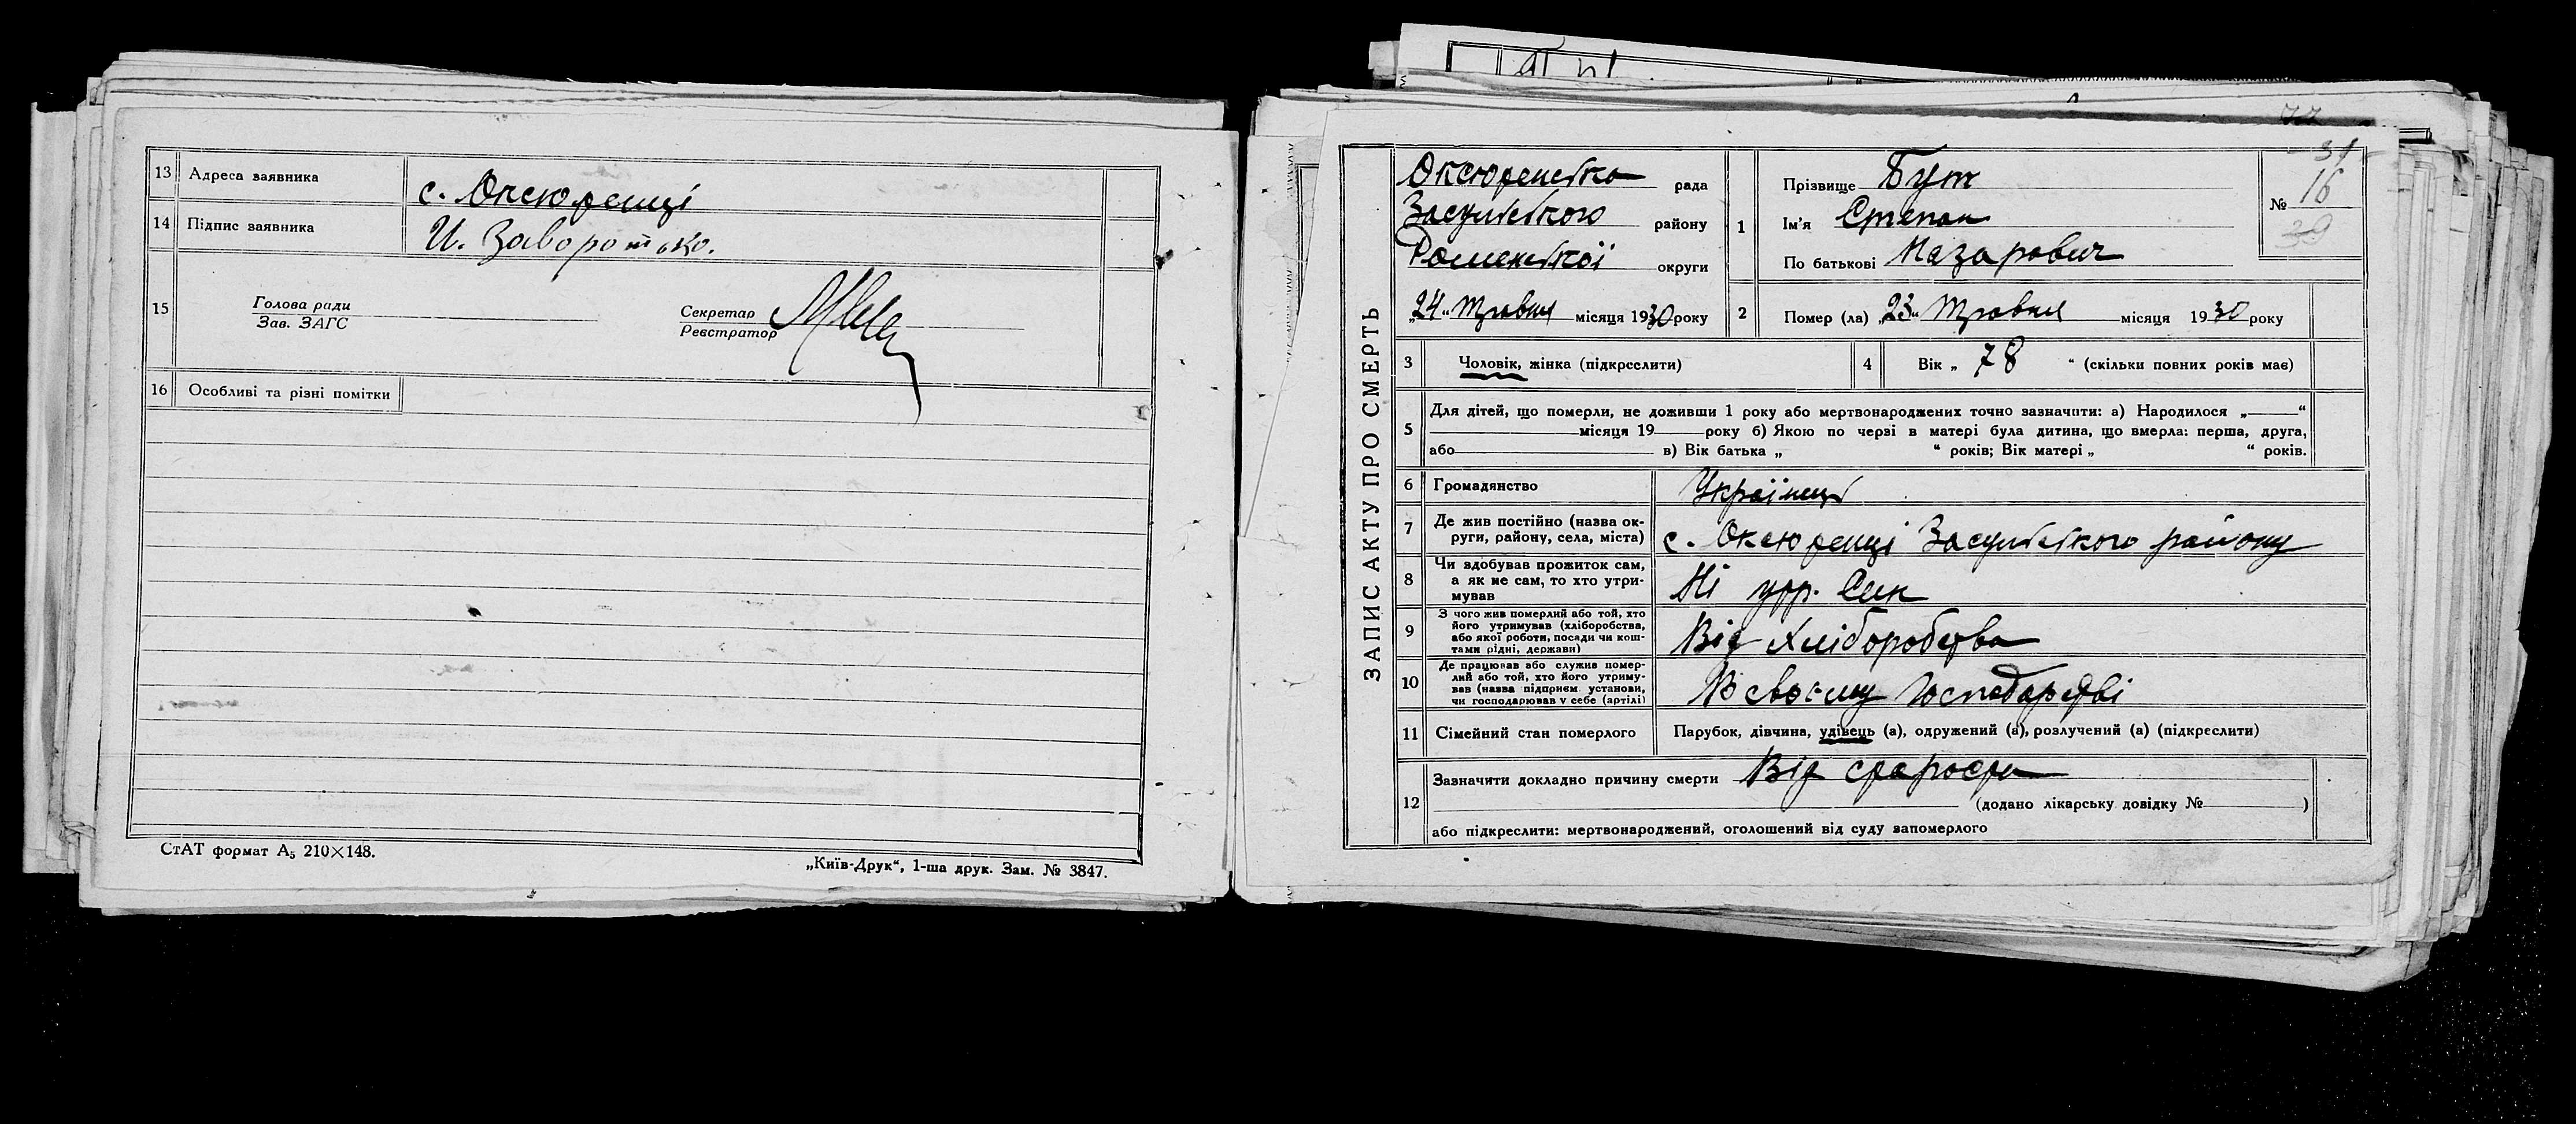 13 Адреса заявника с. Оксюренці
14 Підпис заявника И. Заворотько.
15 Голова ради
Зав. ЗАГС
Секретар
Реєстратор
16 Особливі та різні помітки
СтАТ формат А5 210×148.
„Київ-Друк“, 1-ша друк. Зам. № 3847.
77
ЗАПИС АКТУ ПРО СМЕРТЬ
Оксюренська рада
Засульського району
Роменської округи
„24“ Травня місяця 1930 року
1 Прізвище Бут
Ім'я Степан
По батькові Назарович
31
№ 16
39
2 Помер (ла) „23“ Травня місяця 1930 року
3 Чоловік, жінка (підкреслити)
4 Вік „ 78 “ (скільки повних років має)
5 Для дітей, що померли, не доживши 1 року або мертвонароджених точно зазначити: а) Народилося „ “
місяця 19 року б) Якою по черзі в матері була дитина, що вмерла: перша, друга,
або в) Вік батька „ “ років; Вік матері „ “ років.
6 Громадянство Українець
7 Де жив постійно (назва ок-
руги, району, села, міста) с. Оксюренці Засульського району
8 Чи здобував прожиток сам,
а як не сам, то хто утри-
мував Ні утр. Син
9 З чого жив померлий або той, хто
його утримував (хліборобства,
або якої роботи, посади чи кош-
тами рідні, держави) Від Хліборобства
10 Де працював або служив помер-
лий або той, хто його утриму-
вав (назва підприєм. установи,
чи господарював у себе (артілі) В своєму господарстві
11 Сімейний стан померлого Парубок, дівчина, удівець (а), одружений (а), розлучений (а) (підкреслити)
12 Зазначити докладно причину смерти Від старости
(додано лікарську довідку № )
або підкреслити: мертвонароджений, оголошений від суду запомерлого